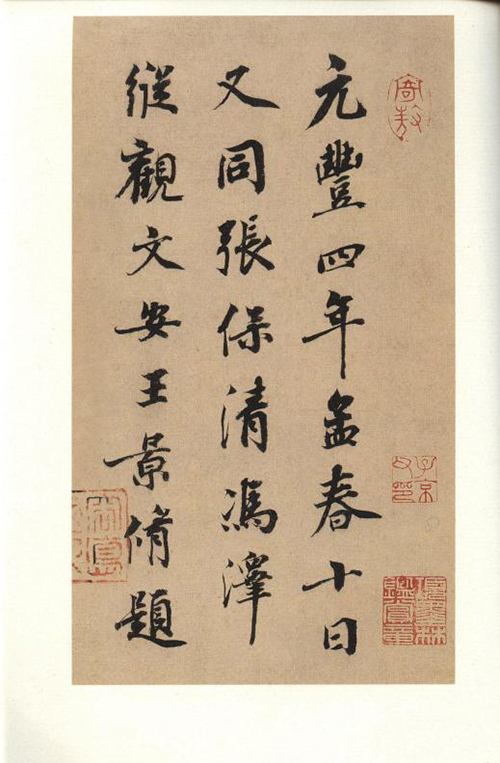 元豐四年孟春十日
又同張保清馮澤
縱觀文安王景脩題